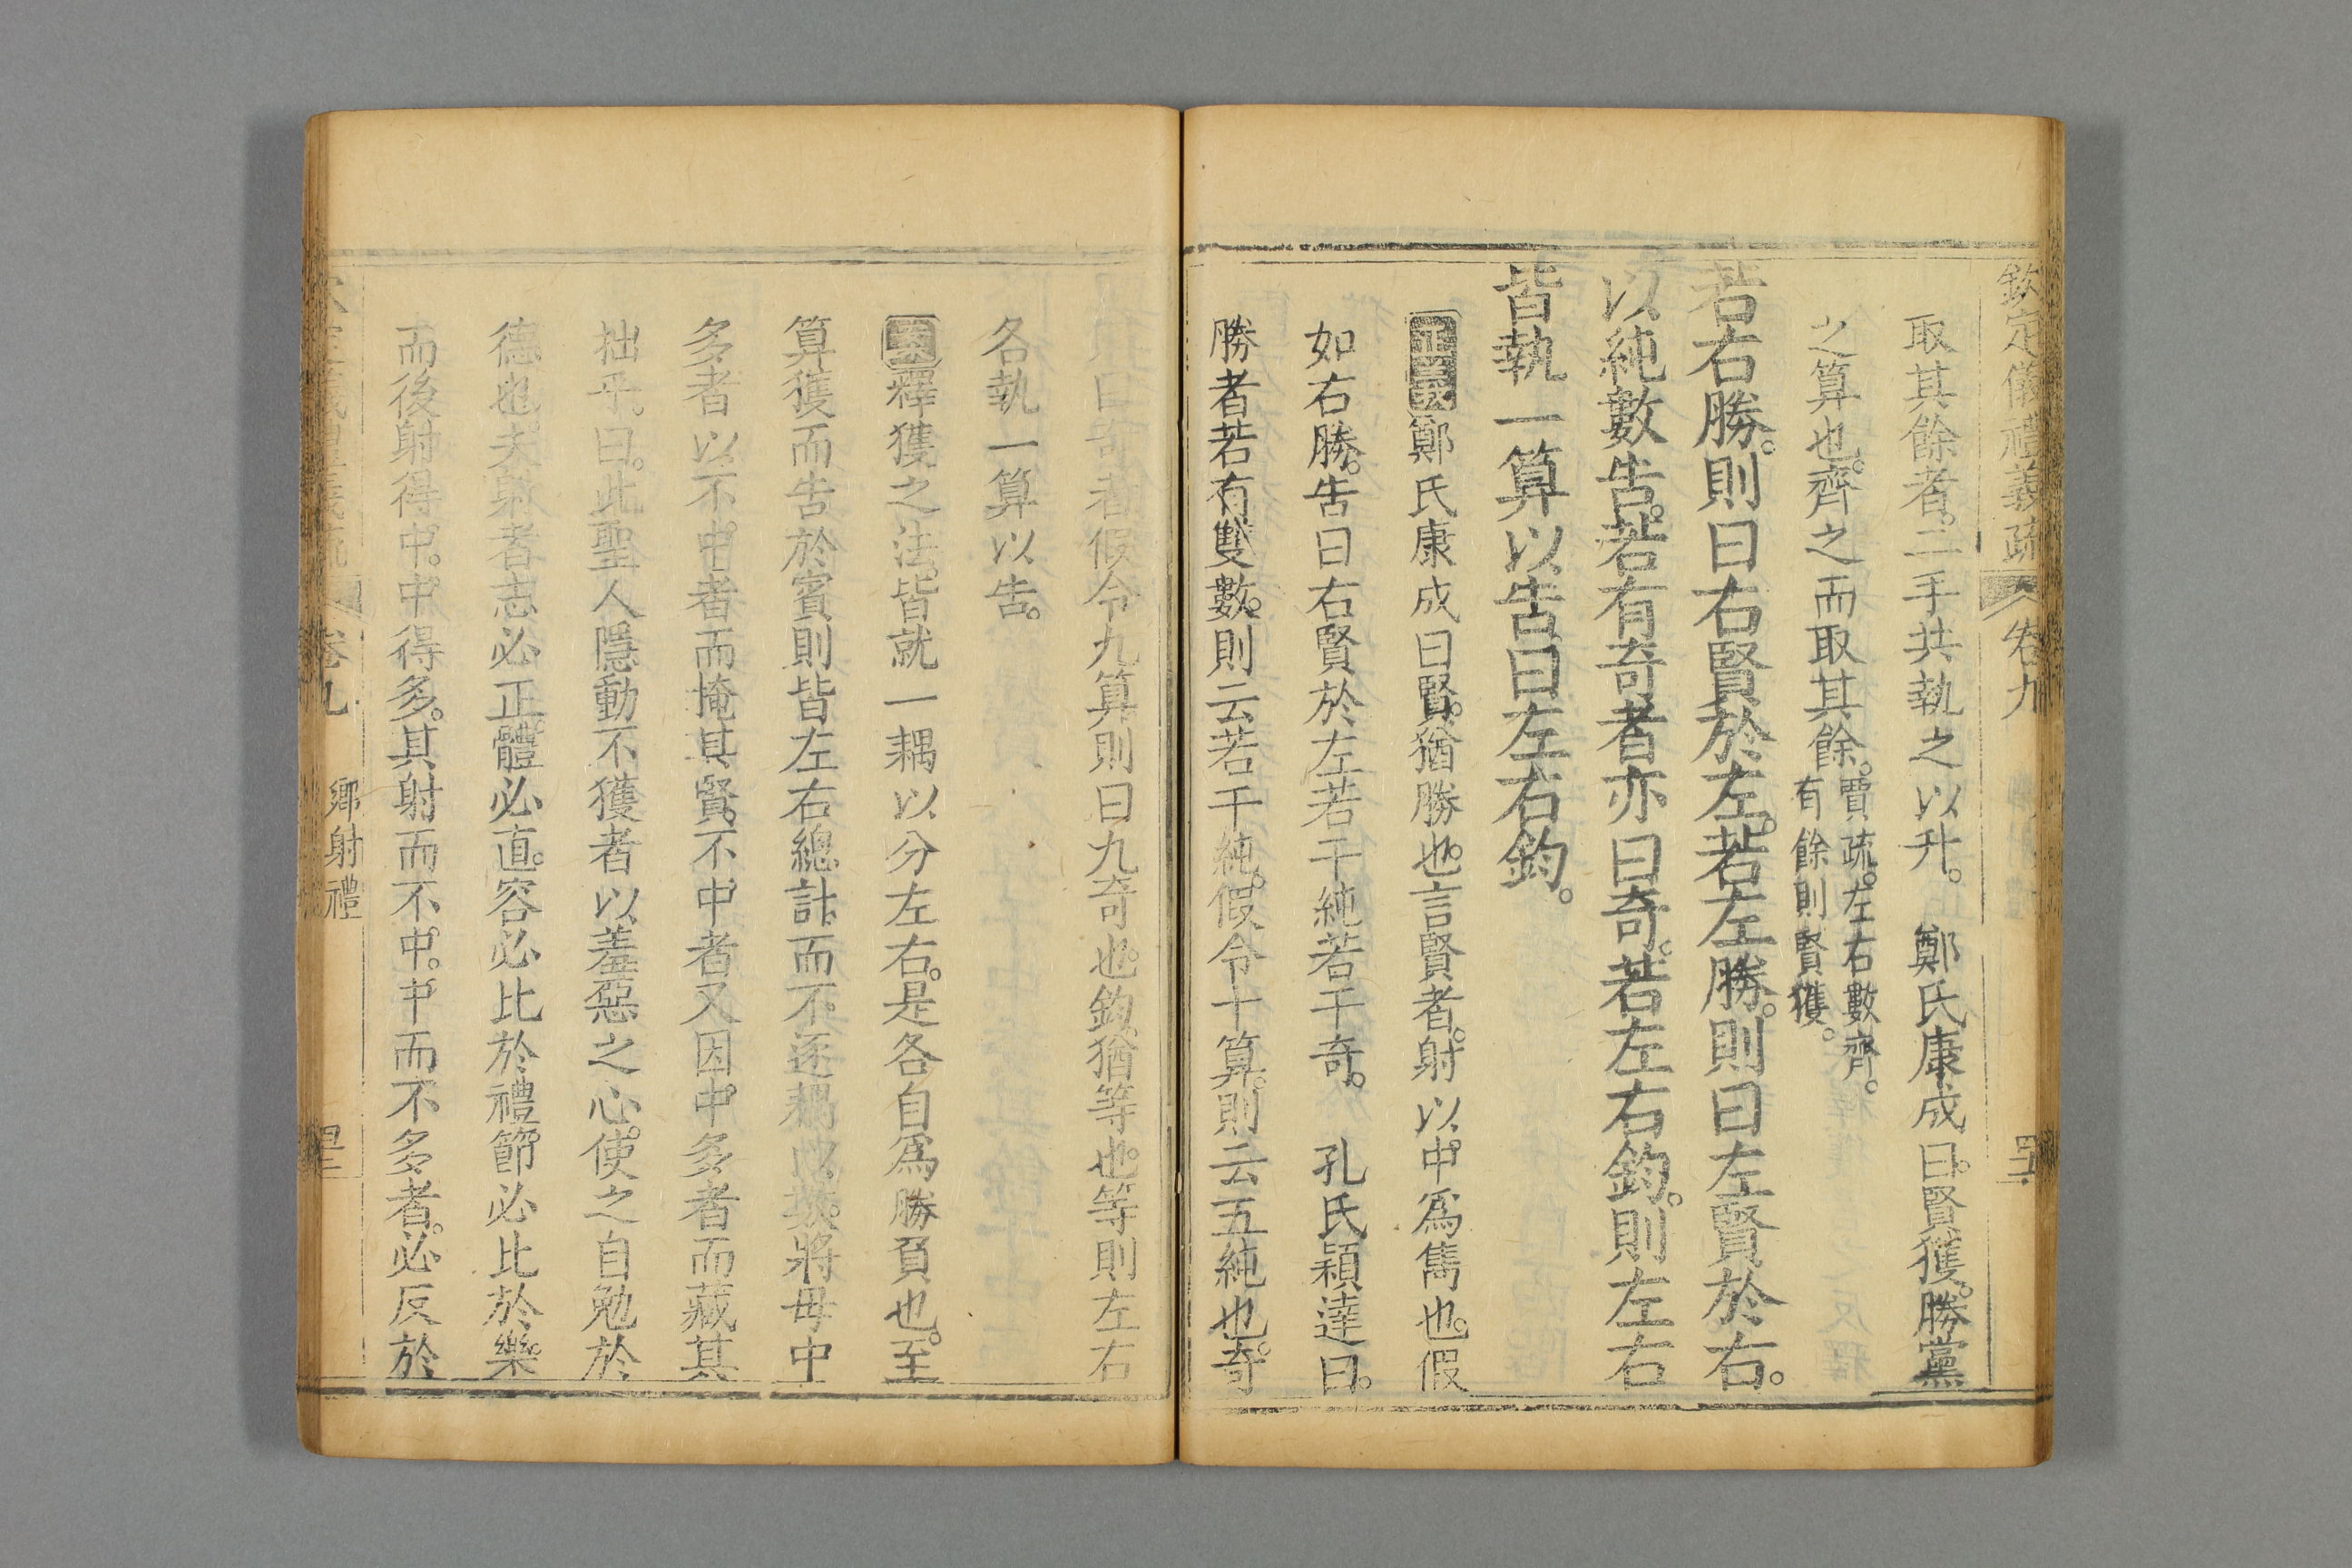 欽定儀禮義疏 卷九
取其餘者二手共執之以升。 鄭氏康成曰賢獲勝黨
之算也齊之而取其餘。賈疏左右數齊。有餘則賢獲。
若右勝則曰右賢於左若左勝則曰左賢於右。
以純數告若有奇者亦曰奇若左右鈞則左右
皆執一算以告曰左右鈞。
正義鄭氏康成曰賢猶勝也言賢者射以中爲雋也假
如右勝告曰右賢於左若干純若干奇。 孔氏穎達曰。
勝者若有雙數則云若干純假令十算則云五純也奇
曰奇者假令九算則曰九奇也鈞猶等也等則左右
各執一算以告。
案釋獲之法皆就一耦以分左右是各自爲勝負也至
算獲而告於賓則皆左右總計而不逐耦以
將毋中
多者以不中者而掩其賢不中者又因中多者而藏其
拙乎曰此聖人隱動不獲者以羞惡之心使之自勉於
德也夫射者志必正體必直容必比於禮節必比於樂
而後射得中中得多其射而不中中而不多者必反於
卷九 鄉射禮